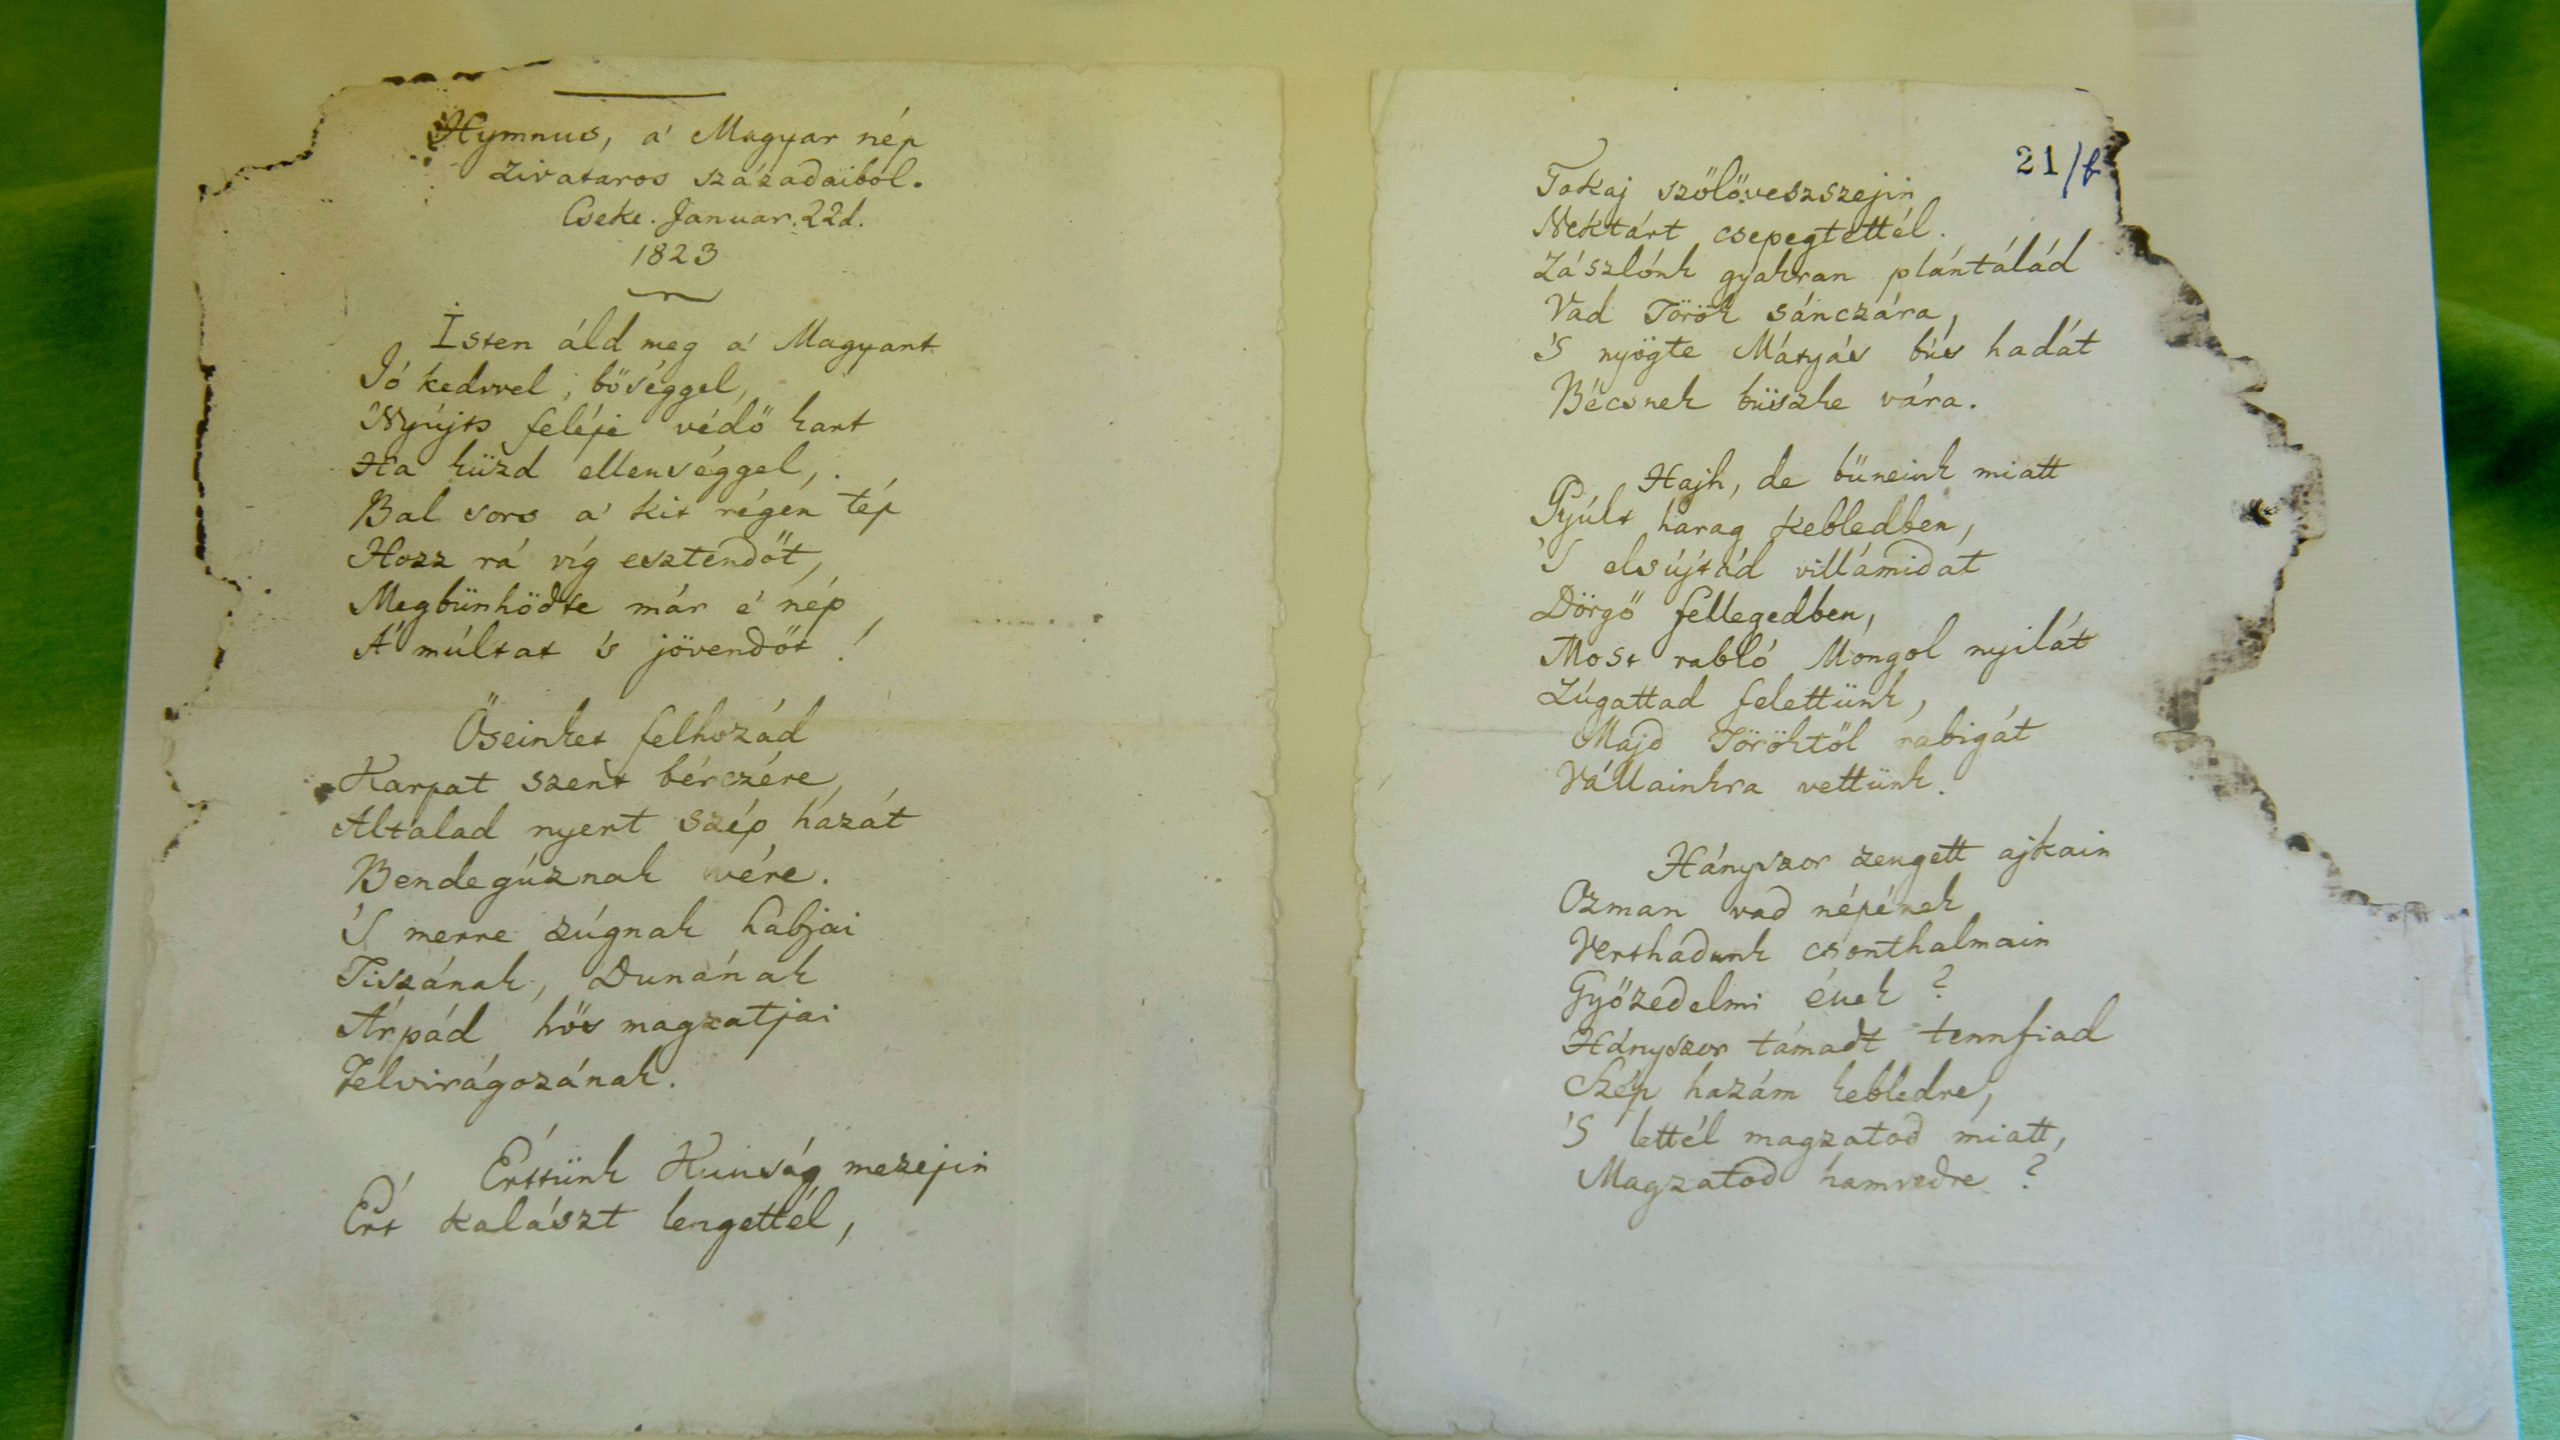 Hymnus, a' Magyar nép
Zivataros századaiból.
Cseke. Januar. 22d.
1823
Isten áld meg a' Magyart
Jó kedvvel, bőséggel,
Nyújts feléje védő kart
Ha küzd ellenséggel,
Bal sors a' kit régen tép
Hozz rá víg esztendőt,
Megbünhödte már é nép
A' múltat 's jövendőt!
Őseinket felhozád
Karpat szent bérczére,
Altalad nyert szép hazát
Bendegúznak vére.
'S merre zúgnak habjai
Tiszának, Dunának
Árpád hős magzatjai
Felvirágozának.
Értünk Kunság mezejin
Ért kalászt lengettél,
21/b
Tokaj szőlőveszszejin
Nektárt csepegtettél.
Zászlónk gyakran plántálád
Vad Török sánczára,
'S nyögte Mátyás bús hadát
Bécsnek büszke vára.
Hajh, de büneink miatt
Gyúlt harag kebledben,
'S elsújtád villámidat
Dörgő fellegedben,
Most rabló Mongol nyilát
Zúgattad felettünk,
Majd Töröktől rabigát
Vállainkra vettünk.
Hányszor zengett ajkain
Ozman vad népének
Vert hadunk csonthalmain
Győzedelmi ének?
Hányszor támadt tennfiad
Szép hazám kebledre,
'S lettél magzatod miatt,
Magzatod hamvedre?